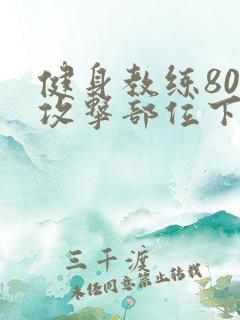 健身教练80
攻擊部位下
三千渡
未经同意禁止转载